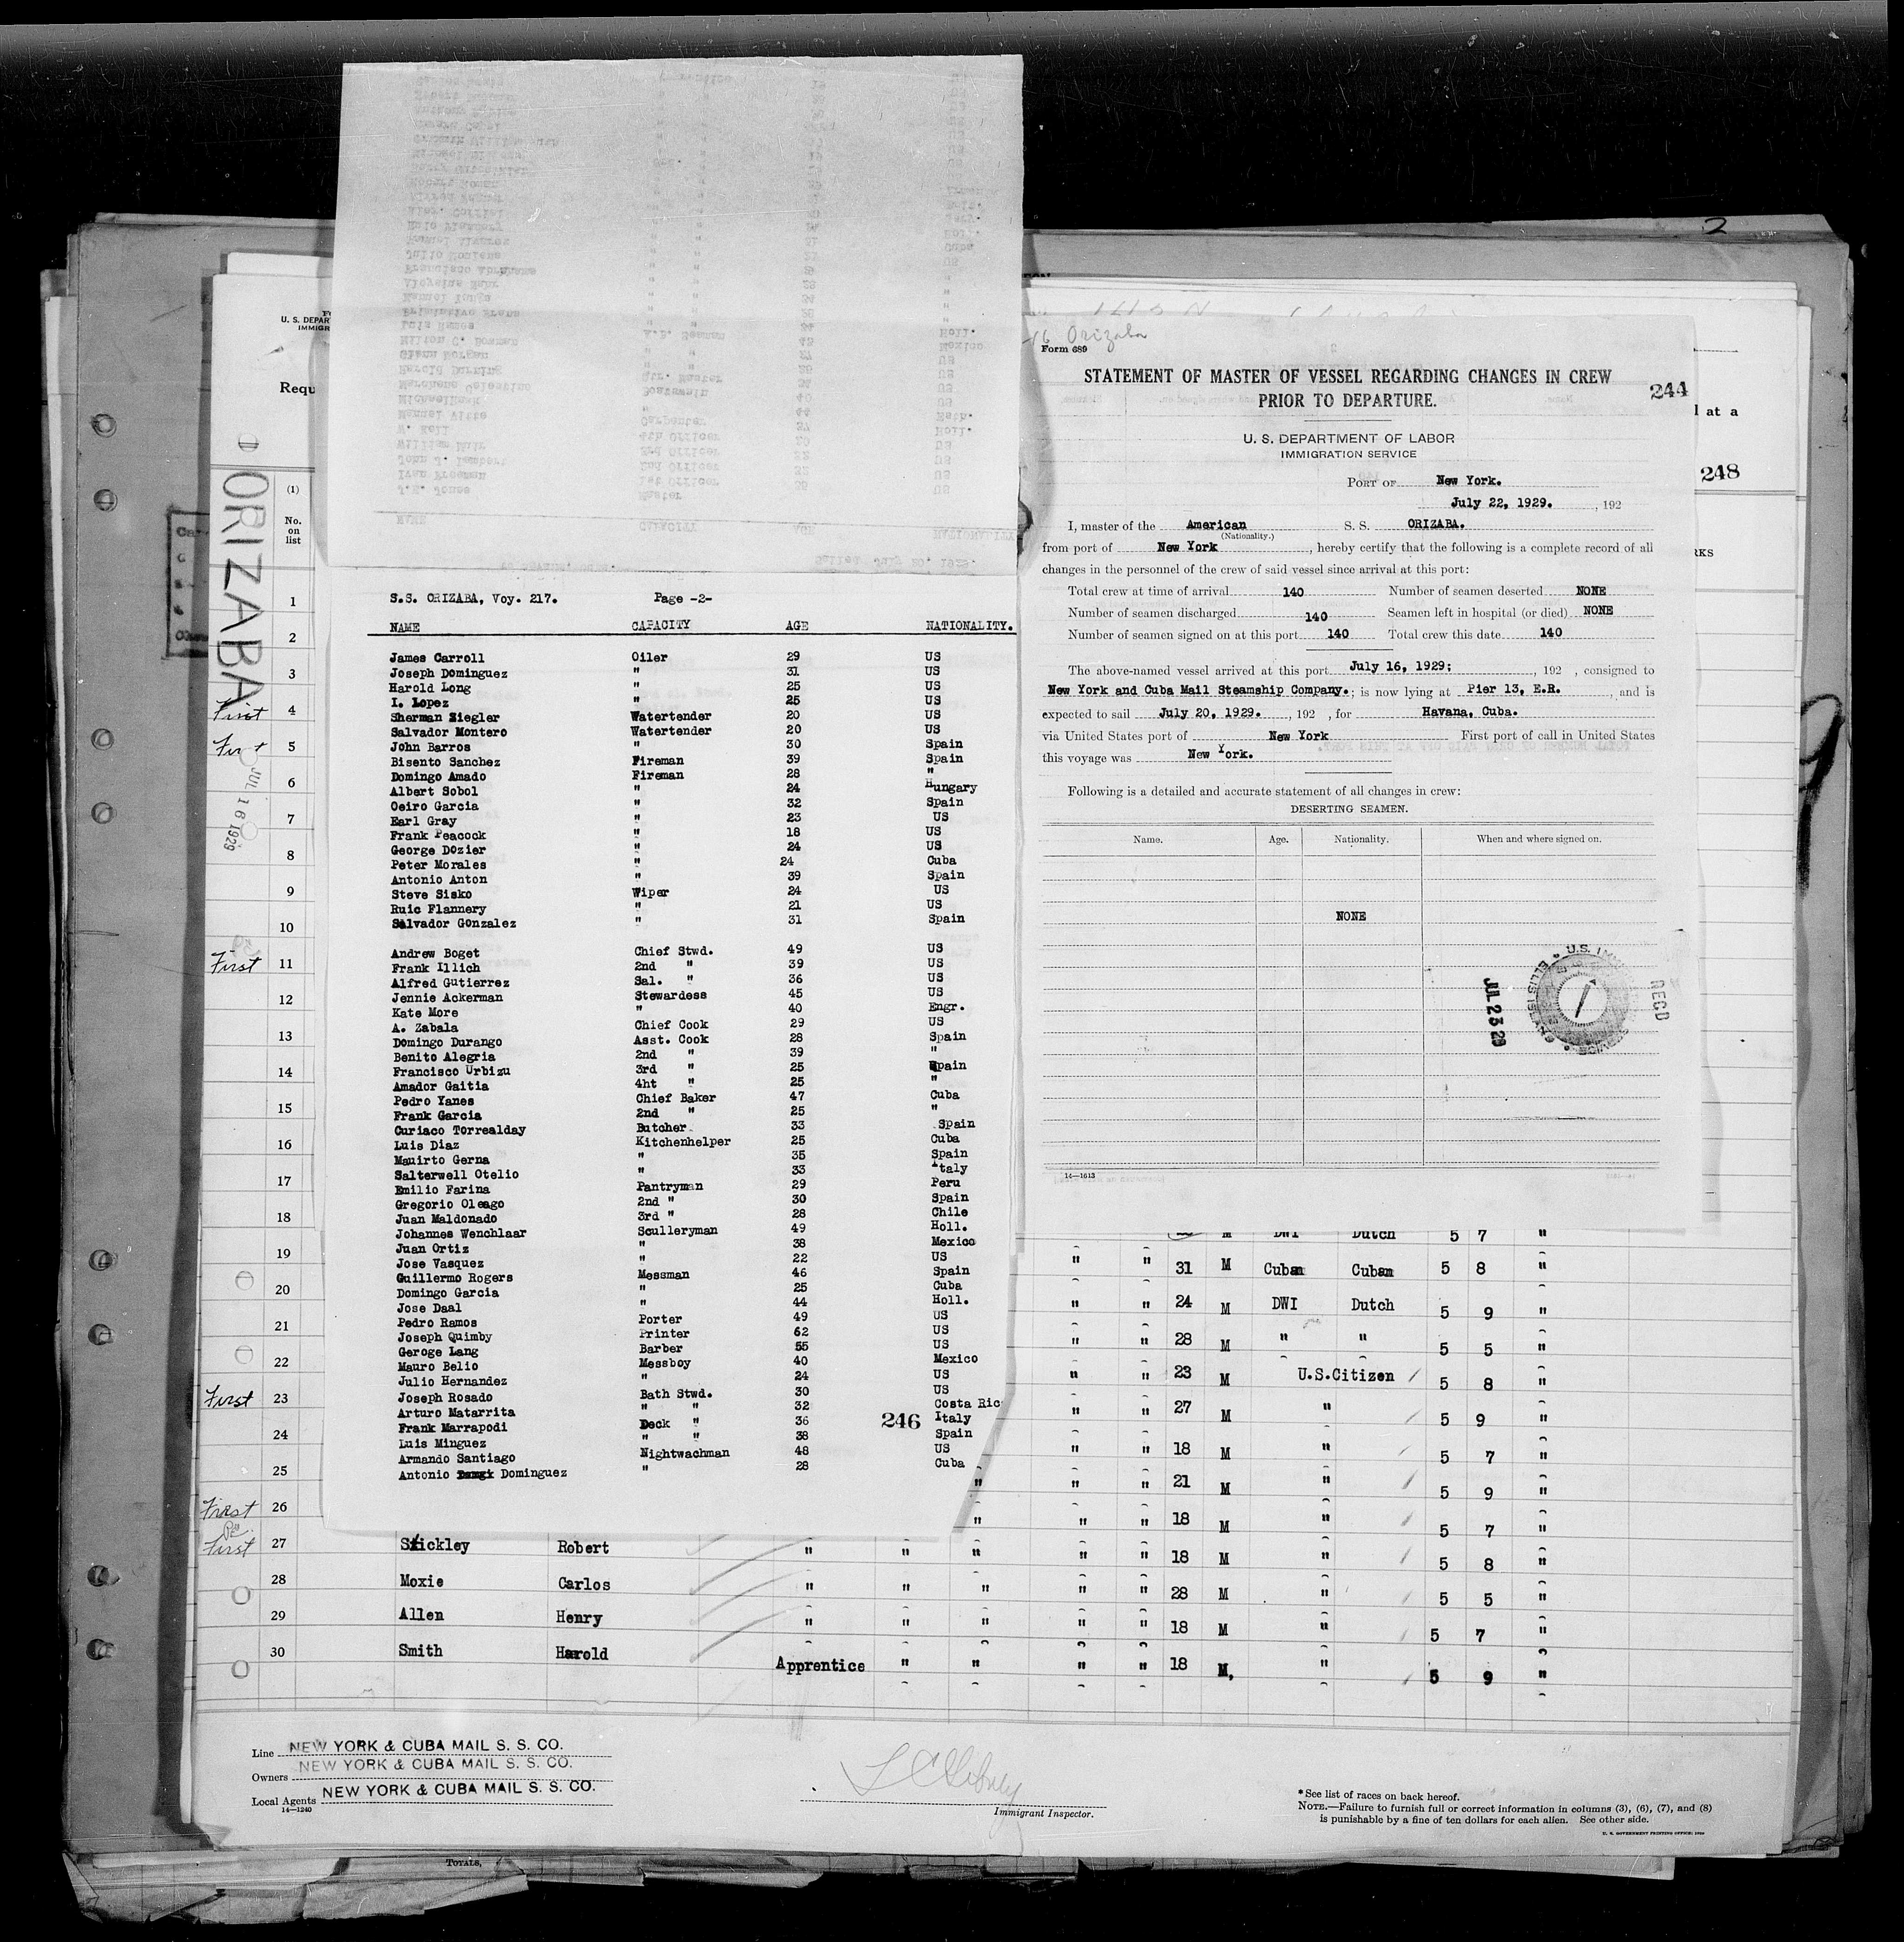 S.S. ORIZABA, Voy. 217. Page -2-
NAME CAPACITY AGE NATIONALITY.
James Carroll Oiler 29 US
Joseph Dominguez " 31 US
Harold Long " 25 US
I. Lopez " 25 US
Sherman Ziegler Watertender 20 US
Salvador Montero Watertender 20 US
John Barros " 30 Spain
Bisento Sanchez Fireman 39 Spain
Domingo Amado Fireman 28 "
Albert Sobol " 24 Hungary
Oeiro Garcia " 32 Spain
Earl Gray " 23 US
Frank Peacock " 18 US
George DOzier " 24 US
Peter Morales " 24 Cuba
Antonio Anton " 39 Spain
Steve Sisko Wiper 24 US
Ruic Flannery " 21 US
Salvador Gonzalez " 31 Spain
Andrew Boget Chief Stwd. 49 US
Frank Illich 2nd " 39 US
Alfred Gutierrez Sal. " 36 US
Jennie Ackerman Stewardess 45 US
Kate More " 40 Engr.
A. Zabala Chief Cook 29 US
Domingo Durango Asst. Cook 28 Spain
Benito Alegria 2nd " 39 "
Francisco Urbizu 3rd " 25 Spain
Amador Gaitia 4ht " 25 "
Pedro Yanes Chief Baker 47 Cuba
Frank Garcia 2nd " 25 "
Curiaco Torrealday Butcher 33 Spain
Luis Diaz Kitchenhelper 25 Cuba
Mauirto Gerna " 35 Spain
Salterwell Otelio " 33 Italy
Emilio Farina Pantryman 29 Peru
Gregorio Oleago 2nd " 30 Spain
Juan Maldonado 3rd " 28 Chile
Johannes Wenchlaar Sculleryman 49 Holl.
Juan Ortiz " 38 Mexico
Jose Vasquez " 22 US
Guillermo Rogers Messman 46 Spain
Domingo Garcia " 25 Cuba
Jose Daal " 44 Holl.
Pedro Ramos Porter 49 US
Joseph Quimby Printer 62 US
Geroge Lang Barber 55 US
Mauro Belio Messboy 40 Mexico
Julio Hernandez " 24 US
Joseph Rosado Bath Stwd. 30 US
Arturo Matarrita " " 32 Costa Ric
Frank Marrapodi Deck " 36 Italy
Luis Minguez " " 38 Spain
Armando Santiago Nightwachman 48 US
Antonio Dominguez " 28 Cuba
246
16 Orizaba
Form 689
STATEMENT OF MASTER OF VESSEL REGARDING CHANGES IN CREW
PRIOR TO DEPARTURE.
244
U. S. DEPARTMENT OF LABOR
IMMIGRATION SERVICE
PORT OF New York.
July 22, 1929. , 192
I, master of the American S. S. ORIZABA.
(Nationality.)
from port of New York , hereby certify that the following is a complete record of all
changes in the personnel of the crew of said vessel since arrival at this port:
Total crew at time of arrival 140 Number of seamen deserted NONE
Number of seamen discharged 140 Seamen left in hospital (or died) NONE
Number of seamen signed on at this port 140 Total crew this date 140
The above-named vessel arrived at this port July 16, 1929; , 192 , consigned to
New York and Cuba Mail Steamship Company.; is now lying at Pier 13, E.R. , and is
expected to sail July 20, 1929. , 192 , for Havana, Cuba.
via United States port of New York First port of call in United States
this voyage was New York.
Following is a detailed and accurate statement of all changes in crew:
DESERTING SEAMEN.
Name. Age. Nationality. When and where signed on.
NONE
JUL 23 29
RECD
14—1613
U. S. DEPAR
IMMIGR
Requ
l at a
248
RKS
ORIZABA
JUL 16 1929
(1)
No.
on
list
1
2
3
First 4
First 5
6
7
8
9
10
First 11
12
13
14
15
16
17
18 M DWI Dutch 5 7 "
19 " " 31 M Cuban Cuban 5 8 "
20 " " 24 M DWI Dutch 5 9 "
21 " " 28 M " " 5 5 "
22 " " 23 M U.S.Citizen 5 8 "
First 23 " " 27 M " 5 9 "
24 " " 18 M " 5 7 "
25 " " " 21 M " 5 9 "
First 26 " " " 18 M " 5 7 "
First 27 Stickley Robert " " " " " 18 M " 5 8 "
28 Moxie Carlos " " " " " 28 M " 5 5 "
29 Allen Henry " " " " " 18 M " 5 7 "
30 Smith Harold Apprentice " " " " 18 M, " 5 9 "
Line NEW YORK & CUBA MAIL S. S. CO.
Owners NEW YORK & CUBA MAIL S. S. CO.
Local Agents NEW YORK & CUBA MAIL S. S. CO.
14—1240
Immigrant Inspector.
*See list of races on back hereof.
NOTE.—Failure to furnish full or correct information in columns (3), (6), (7), and (8)
is punishable by a fine of ten dollars for each alien. See other side.
U. S. GOVERNMENT PRINTING OFFICE: 1929
TOTALS,